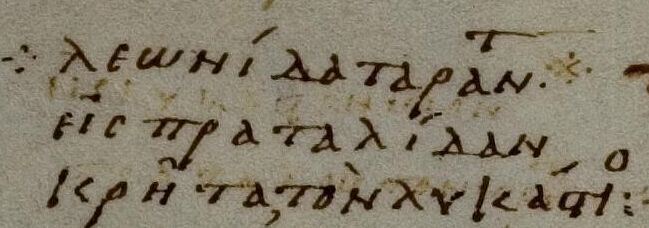 ⁘ λεωνίδα ταραντ.
εἰς πραταλίδαν
κρῆτα τὸν λυκάστιο: